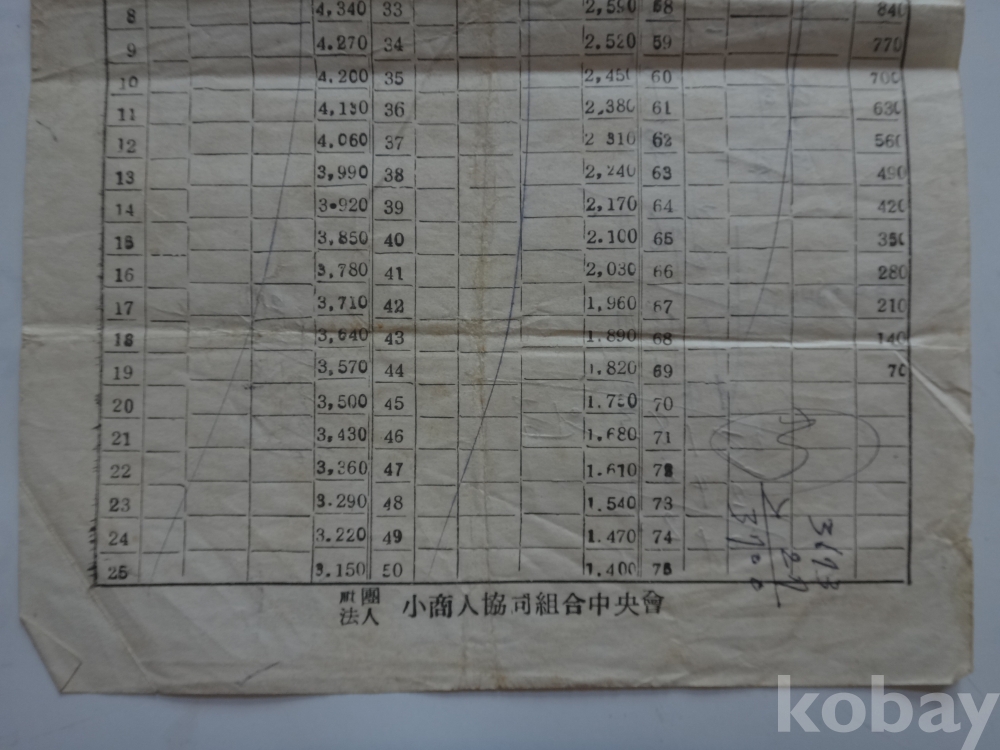 8 4,340 33 2,590 58 840
9 4.270 34 2.520 59 770
10 4.200 35 2,450 60 700
11 4,130 36 2,380 61 630
12 4,060 37 2 310 62 560
13 3,990 38 2,240 63 490
14 3•920 39 2,170 64 420
15 3,850 40 2.100 65 350
16 3,780 41 2,030 66 280
17 3,710 42 1,960 67 210
18 3,640 43 1.890 68 140
19 3,570 44 1.820 69 70
20 3,500 45 1.750 70
21 3,430 46 1.680 71
22 3,360 47 1.610 72
23 3.290 48 1.540 73
24 3.220 49 1.470 74
25 3.150 50 1.400 75
3700
社團法人 小商人協司組合中央會
kobay